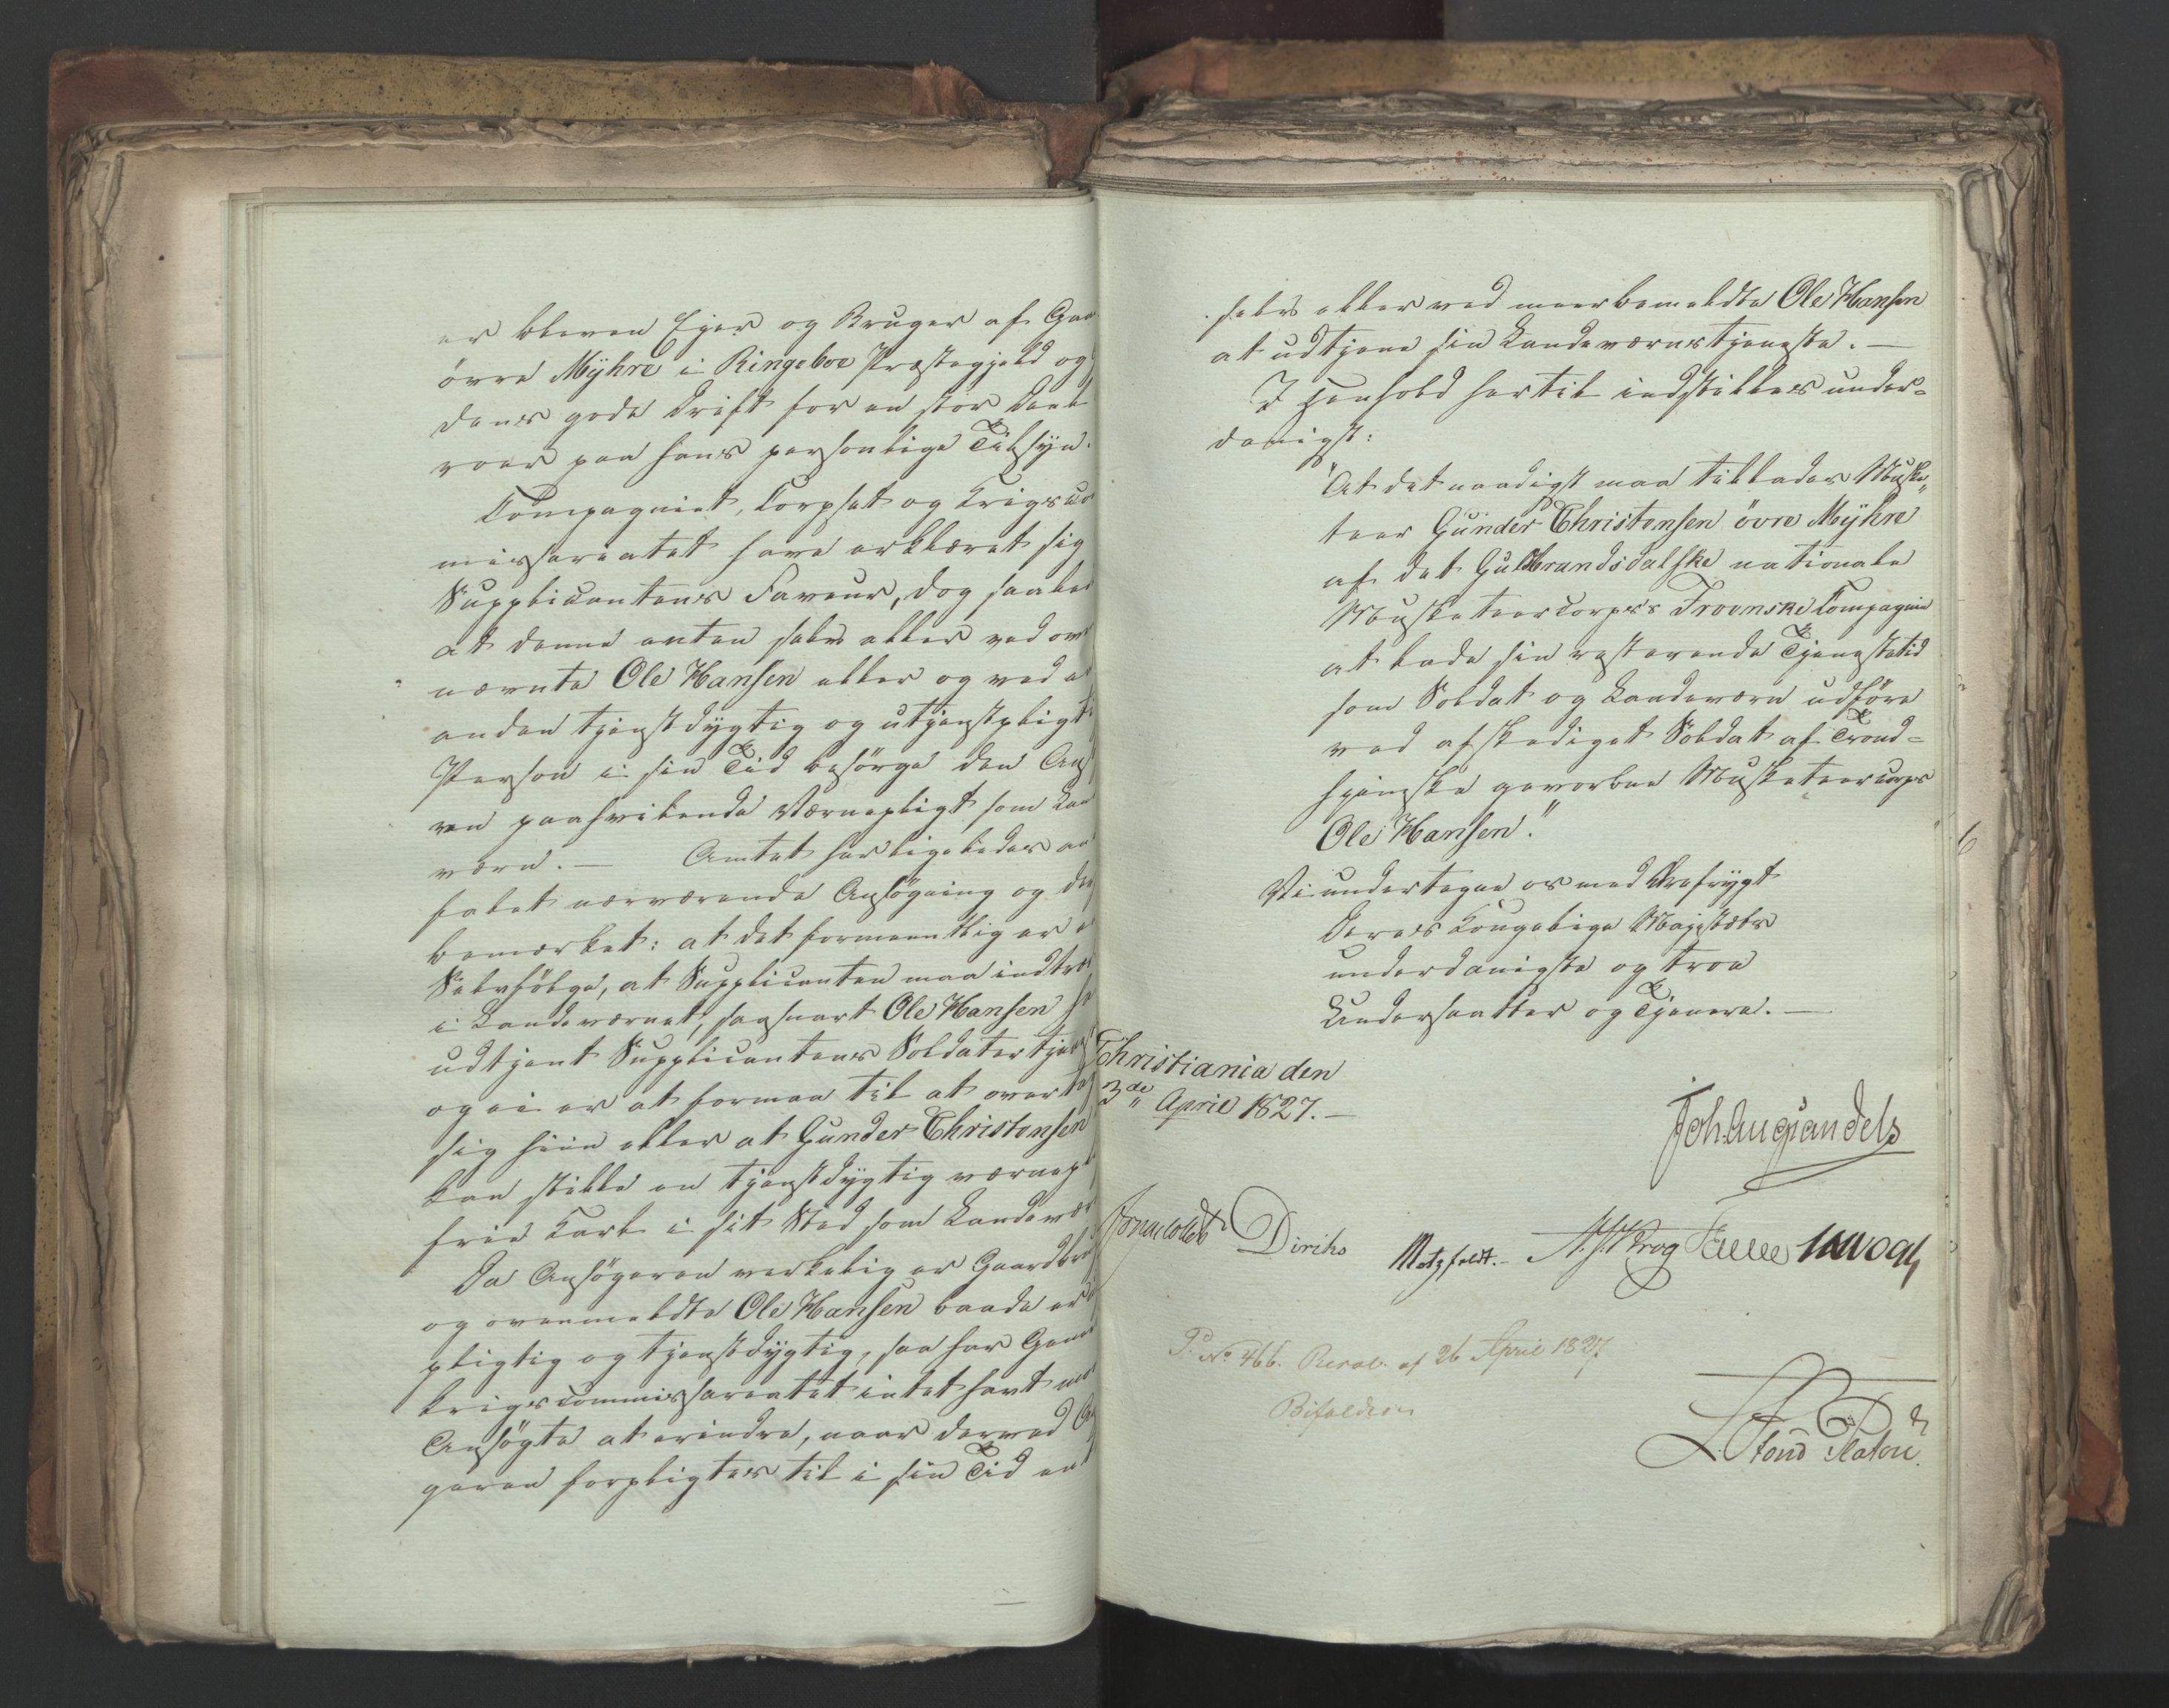 er bleven Eier og Bruger af Gaa
övre Mÿhre i Ringeboe Præstegjeld og
dens gode Drift for en stor Deel
roer paa hans personlige Tilsyn.
Compagniet, Corpset og Krigsco
missariatet have erklæret sig
Supplicantens Faveur, dog saale
at denne enten selv eller ved ov
nævnte Ole Hansen eller og ved e
anden tjenstdygtig og utjenstpligt
Person i sin Tid besörge den Ans
ren paahvilende Værnepligt som Lan
værn. — Amtet har ligeledes an
falet nærværende Ansögning og der
bemærket: at det formeentlig er e
Selvfölge, at Supplicanten maa indtræ
i Landeværnet, saasnart Ole Hansen ha
udtjent Supplicantens Soldatertjen
og ei er at formaa til at overt
sig hiin eller at Gunder Christensen
kan stille en tjenstdygtig værnep
frie Karl i sit Sted som Landevær
Da Ansögeren verkelig er Gaardbru
og ovenmeldte Ole Hansen baade er
pligtig og tjenstdygtig, saa har Gene
krigscommissariatet intet havt mo
Ansögte at erindre, naar derved An
geren forpligtes til i sin Tid en
selv eller ved meerbemeldte Ole Hansen
at udtjene sin Landeværnstjeneste. —
I Henhold hertil indstilles under-
danigst:
"At det naadigst maa tillades Muske„
teer Gunder Christensen övre Mÿhre
af det Guldbrandsdalske nationale
Musketeercorps's Froenske Compagnie
at lade sin resterende Tjenestetid
som Soldat og Landeværn udföre
ved afskediget Soldat af Trond-
hjemske gevorbne Musketeercorps
Ole Hansen."
Vi undertegne os med Ærefrygt
Deres Kongelige Majestæts
underdanigste og troe
Undersaatter og Tjenere. —
Christiania den
3de April 1827. —
Joh. Aug. Sandels
Diriks Motzfeldt. Krog Fasting Vogt
P. No 466. Resol. af 26 April 1827
Bifaldes